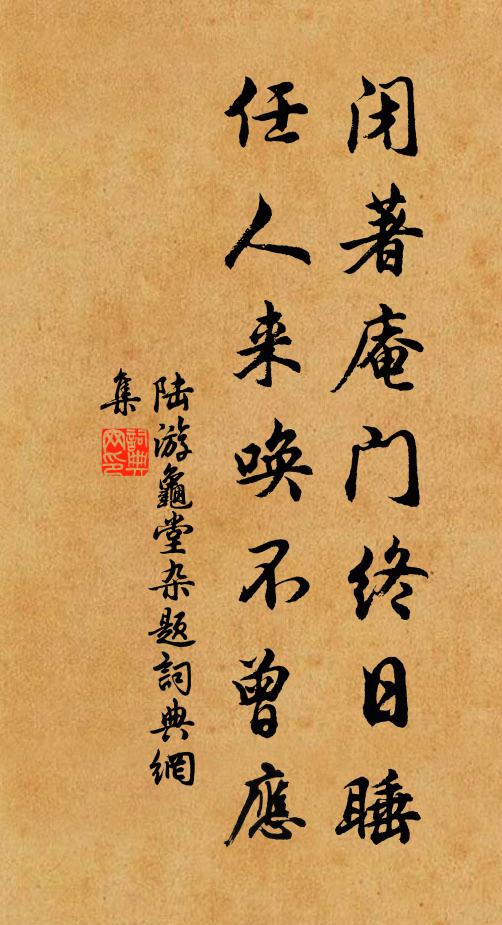 闭著庵门终日睡
任人来唤不曾應
陆游龜堂杂题詞典網
集
詞典
网印